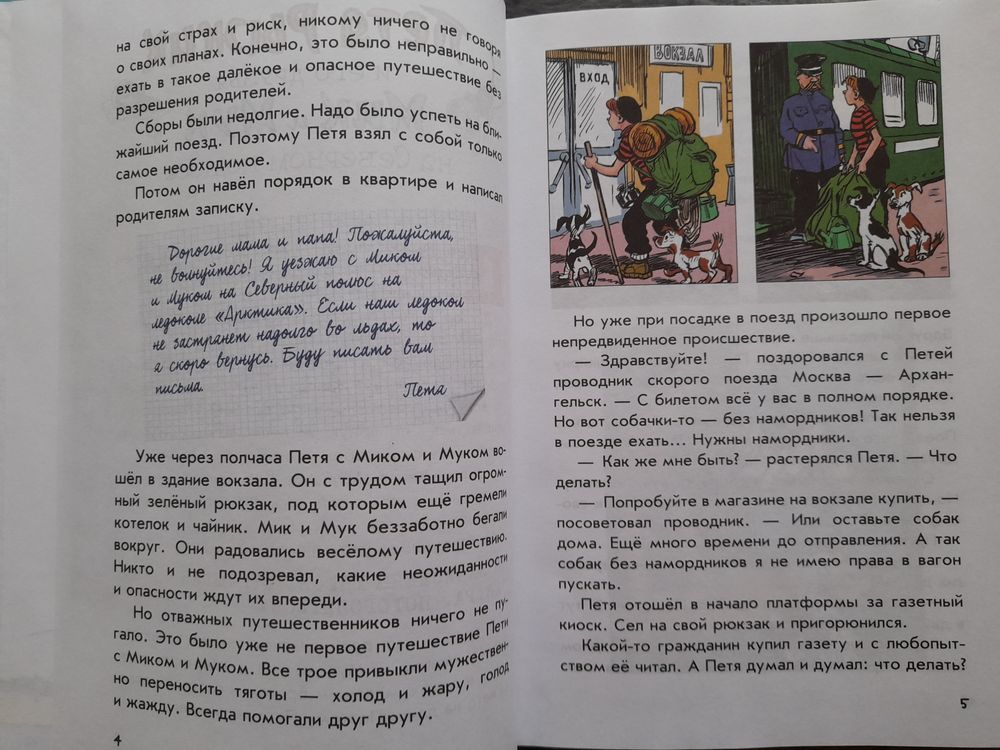 на свой страх и риск, никому ничего не говоря
о своих планах. Конечно, это было неправильно —
ехать в такое далёкое и опасное путешествие без
разрешения родителей.
Сборы были недолгие. Надо было успеть на бли-
жайший поезд. Поэтому Петя взял с собой только
самое необходимое.
Потом он навёл порядок в квартире и написал
родителям записку.
Дорогие мама и папа! Пожалуйста,
не волнуйтесь! Я уезжаю с Миком
и Муком на Северный полюс на
ледоколе «Арктика». Если наш ледокол
не застрянет надолго во льдах, то
я скоро вернусь. Буду писать вам
письма.
Петя
Уже через полчаса Петя с Миком и Муком во-
шёл в здание вокзала. Он с трудом тащил огром-
ный зелёный рюкзак, под которым ещё гремели
котелок и чайник. Мик и Мук беззаботно бегали
вокруг. Они радовались весёлому путешествию.
Никто и не подозревал, какие неожиданности
и опасности ждут их впереди.
Но отважных путешественников ничего не пу-
гало. Это было уже не первое путешествие Пети
с Миком и Муком. Все трое привыкли мужествен-
но переносить тяготы — холод и жару, голод
и жажду. Всегда помогали друг другу.
4
ВОКЗАЛ
ВХОД
Но уже при посадке в поезд произошло первое
непредвиденное происшествие.
— Здравствуйте! — поздоровался с Петей
проводник скорого поезда Москва — Архан-
гельск. — С билетом всё у вас в полном порядке.
Но вот собачки-то — без намордников! Так нельзя
в поезде ехать... Нужны намордники.
— Как же мне быть? — растерялся Петя. — Что
делать?
— Попробуйте в магазине на вокзале купить, —
посоветовал проводник. — Или оставьте собак
дома. Ещё много времени до отправления. А так
собак без намордников я не имею права в вагон
пускать.
Петя отошёл в начало платформы за газетный
киоск. Сел на свой рюкзак и пригорюнился.
Какой-то гражданин купил газету и с любопыт-
ством её читал. А Петя думал и думал: что делать?
5